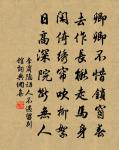 卿卿不惜鎖窗春
去作長楸走馬身
閑倚繡簾吹柳絮
日高深院斷無人
李商隱訪人不遇留別
館詞典網集